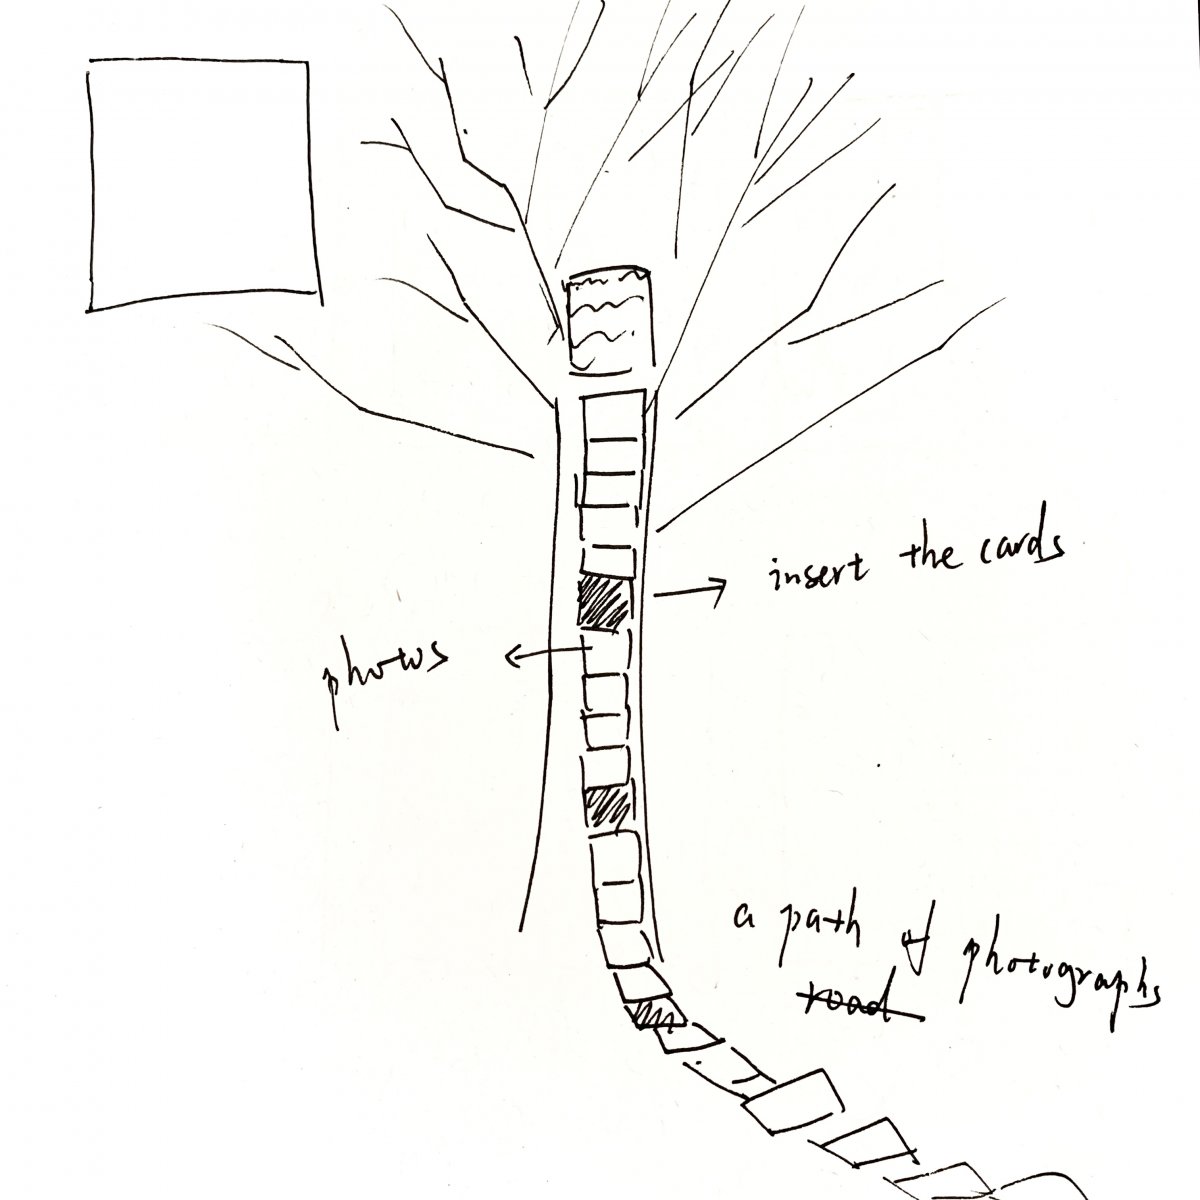 insert the cards
photos
a path of photographs
road